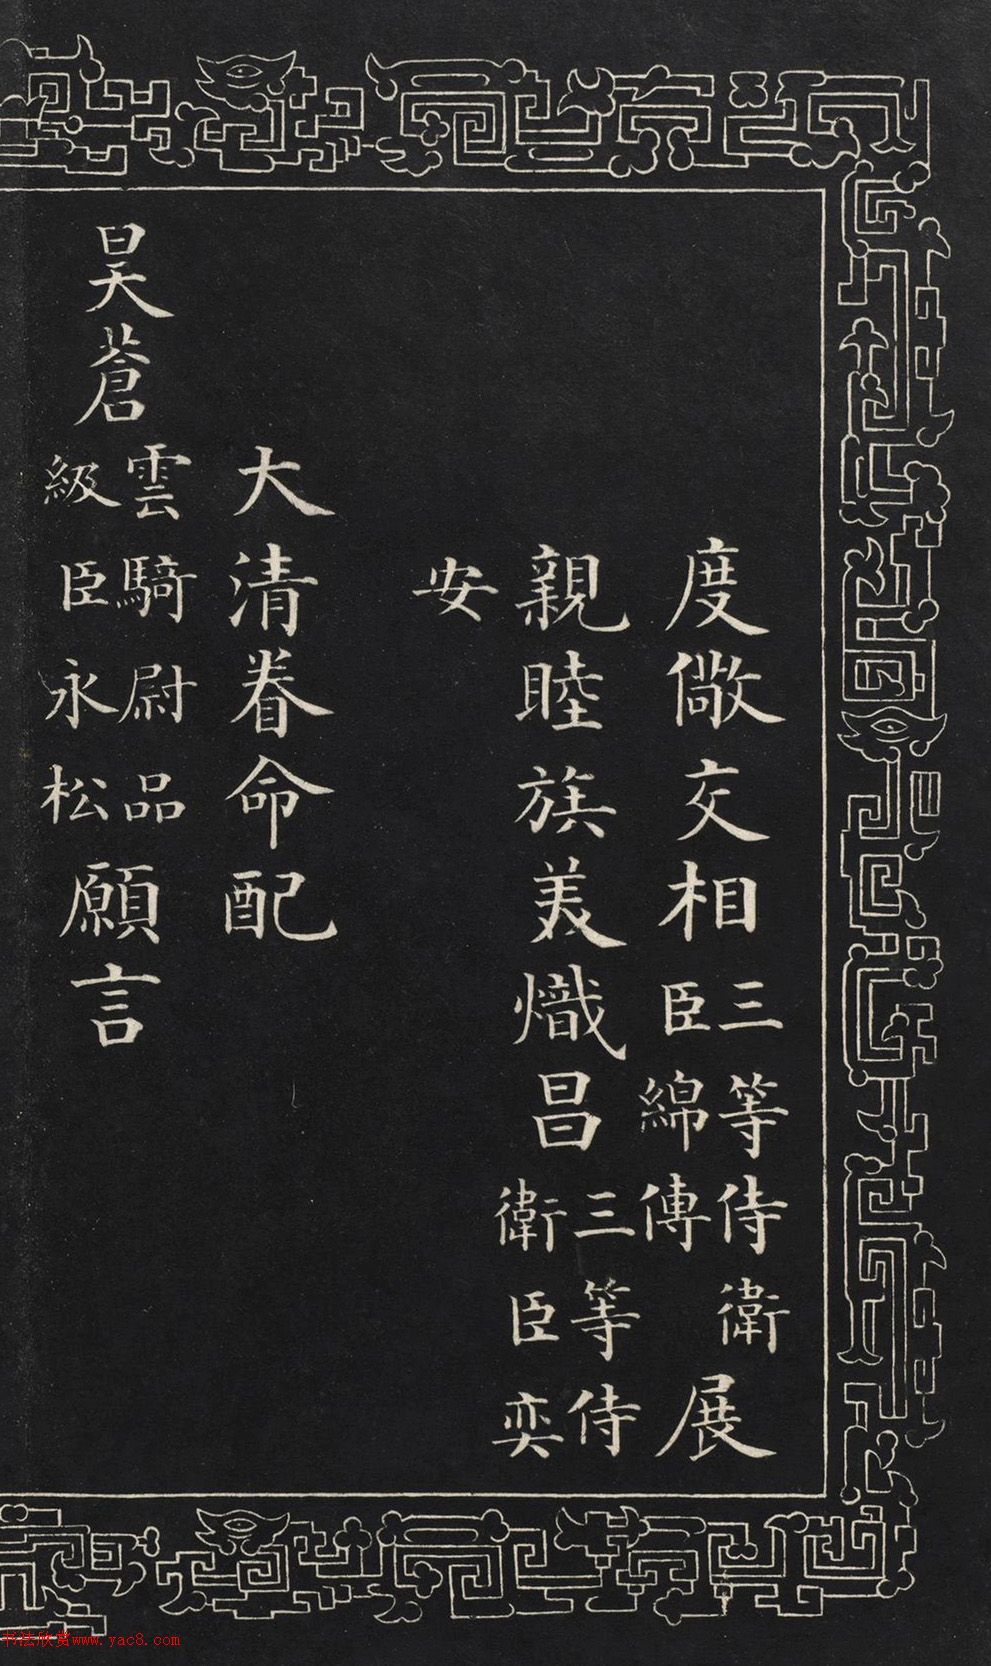 度儆交相三等侍衛臣綿傳展
親睦族美熾昌三等侍衛臣奕
安
大清眷命配
昊蒼雲騎尉品級臣永松願言
书法欣赏www.yac8.com